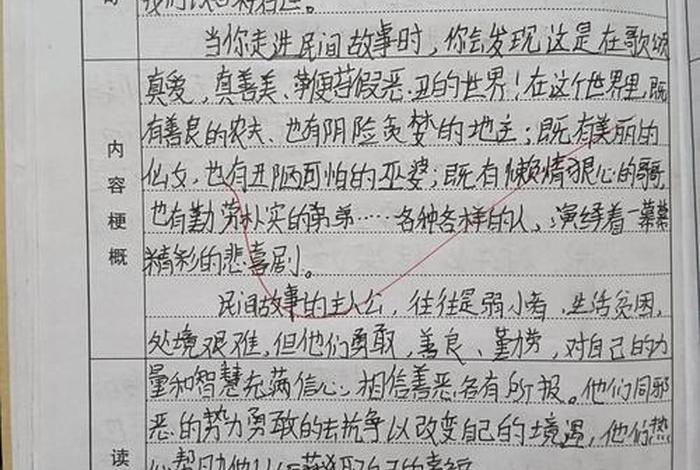 当你走进民间故事时，你会发现这是在歌颂
真爱，真善美、鞭笞假恶.丑的世界！在这个世界里，既
有善良的农夫、也有阴险贪婪的地主；既有美丽的
仙女，也有丑陋可怕的巫婆；既有懒惰狠心的哥哥
也有勤劳朴实的弟弟……各种各样的人，演绎着一幕幕
精彩的悲喜剧。
民间故事的主人公，往往是弱小者，生活贫困，
处境艰难，但他们勇敢，善良、勤劳，对自己的力
量和智慧充满信心，相信善恶各有所报。他们同邪
恶的势力勇敢的去抗争以改变自己的境遇，他们热
内容梗概
读